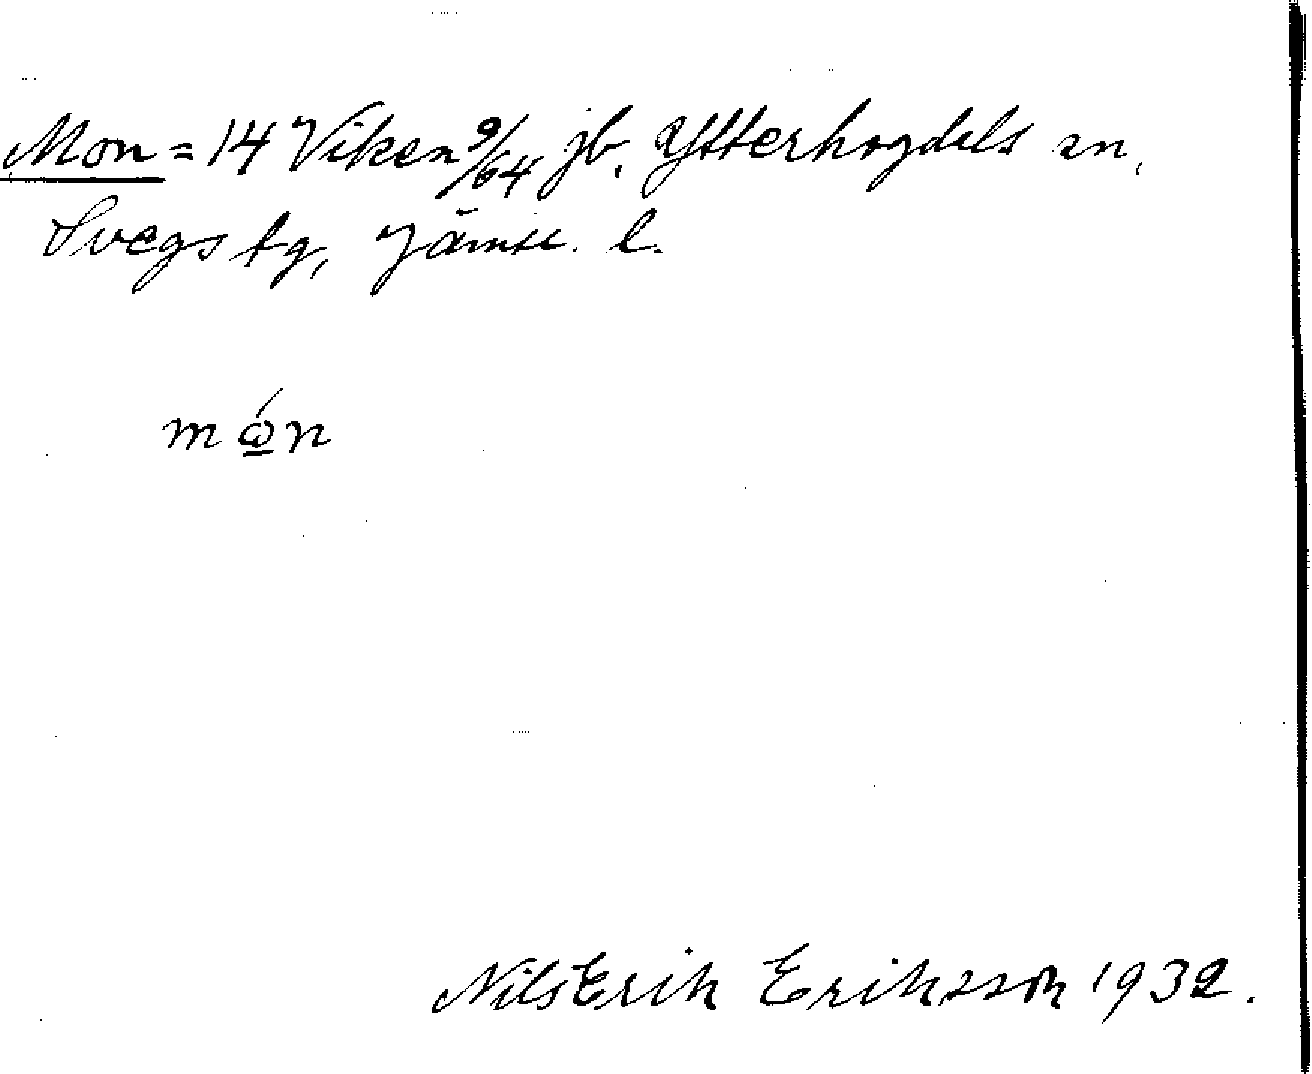 Mon = 14 Viken 9/64 jb. Ytterhogdals sn,
Svegs tg, Jämtl. l.
mώ̱n
Nils Erik Eriksson 1932.